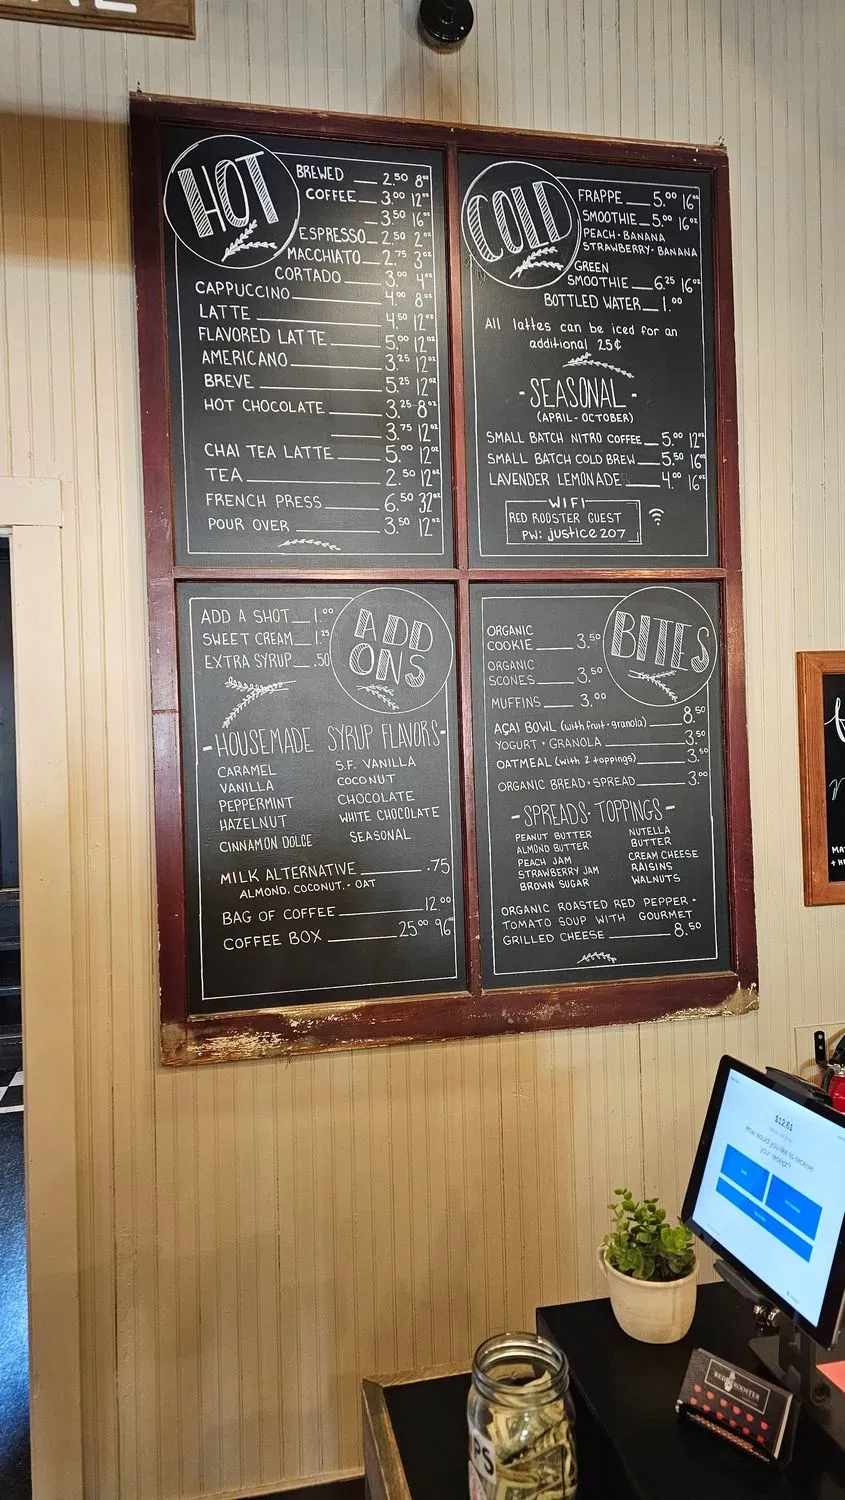 HOT
BREWED 2.50 8oz
COFFEE 3.00 12oz
3.50 16oz
ESPRESSO 2.50 2oz
MACCHIATO 2.75 3oz
CORTADO 3.00 4oz
CAPPUCCINO 4.00 8oz
LATTE 4.50 12oz
FLAVORED LATTE 5.00 12oz
AMERICANO 3.25 12oz
BREVE 5.25 12oz
HOT CHOCOLATE 3.25 8oz
3.75 12oz
CHAI TEA LATTE 5.00 12oz
TEA 2.50 12oz
FRENCH PRESS 6.50 32oz
POUR OVER 3.50 12oz
COLD
FRAPPE 5.00 16oz
SMOOTHIE 5.00 16oz
PEACH · BANANA
STRAWBERRY · BANANA
GREEN
SMOOTHIE 6.25 16oz
BOTTLED WATER 1.00
All lattes can be iced for an
additional 25¢
- SEASONAL -
(APRIL - OCTOBER)
SMALL BATCH NITRO COFFEE 5.00 12oz
SMALL BATCH COLD BREW 5.50 16oz
LAVENDER LEMONADE 4.00 16oz
WIFI
RED ROOSTER GUEST
PW: justice207
ADD ONS
ADD A SHOT 1.00
SWEET CREAM 1.25
EXTRA SYRUP .50
- HOUSEMADE SYRUP FLAVORS -
CARAMEL
VANILLA
PEPPERMINT
HAZELNUT
CINNAMON DOLCE
S.F. VANILLA
COCONUT
CHOCOLATE
WHITE CHOCOLATE
SEASONAL
MILK ALTERNATIVE .75
ALMOND, COCONUT, + OAT
BAG OF COFFEE 12.00
COFFEE BOX 25.00 96oz
BITES
ORGANIC
COOKIE 3.50
ORGANIC
SCONES 3.50
MUFFINS 3.00
AÇAI BOWL (with fruit + granola) 8.50
YOGURT + GRANOLA 3.50
OATMEAL (with 2 toppings) 3.50
ORGANIC BREAD + SPREAD 3.00
- SPREADS + TOPPINGS -
PEANUT BUTTER
ALMOND BUTTER
PEACH JAM
STRAWBERRY JAM
BROWN SUGAR
NUTELLA
BUTTER
CREAM CHEESE
RAISINS
WALNUTS
ORGANIC ROASTED RED PEPPER +
TOMATO SOUP WITH GOURMET
GRILLED CHEESE 8.50
$12.61
How would you like to receive
your receipt?
RED ROOSTER